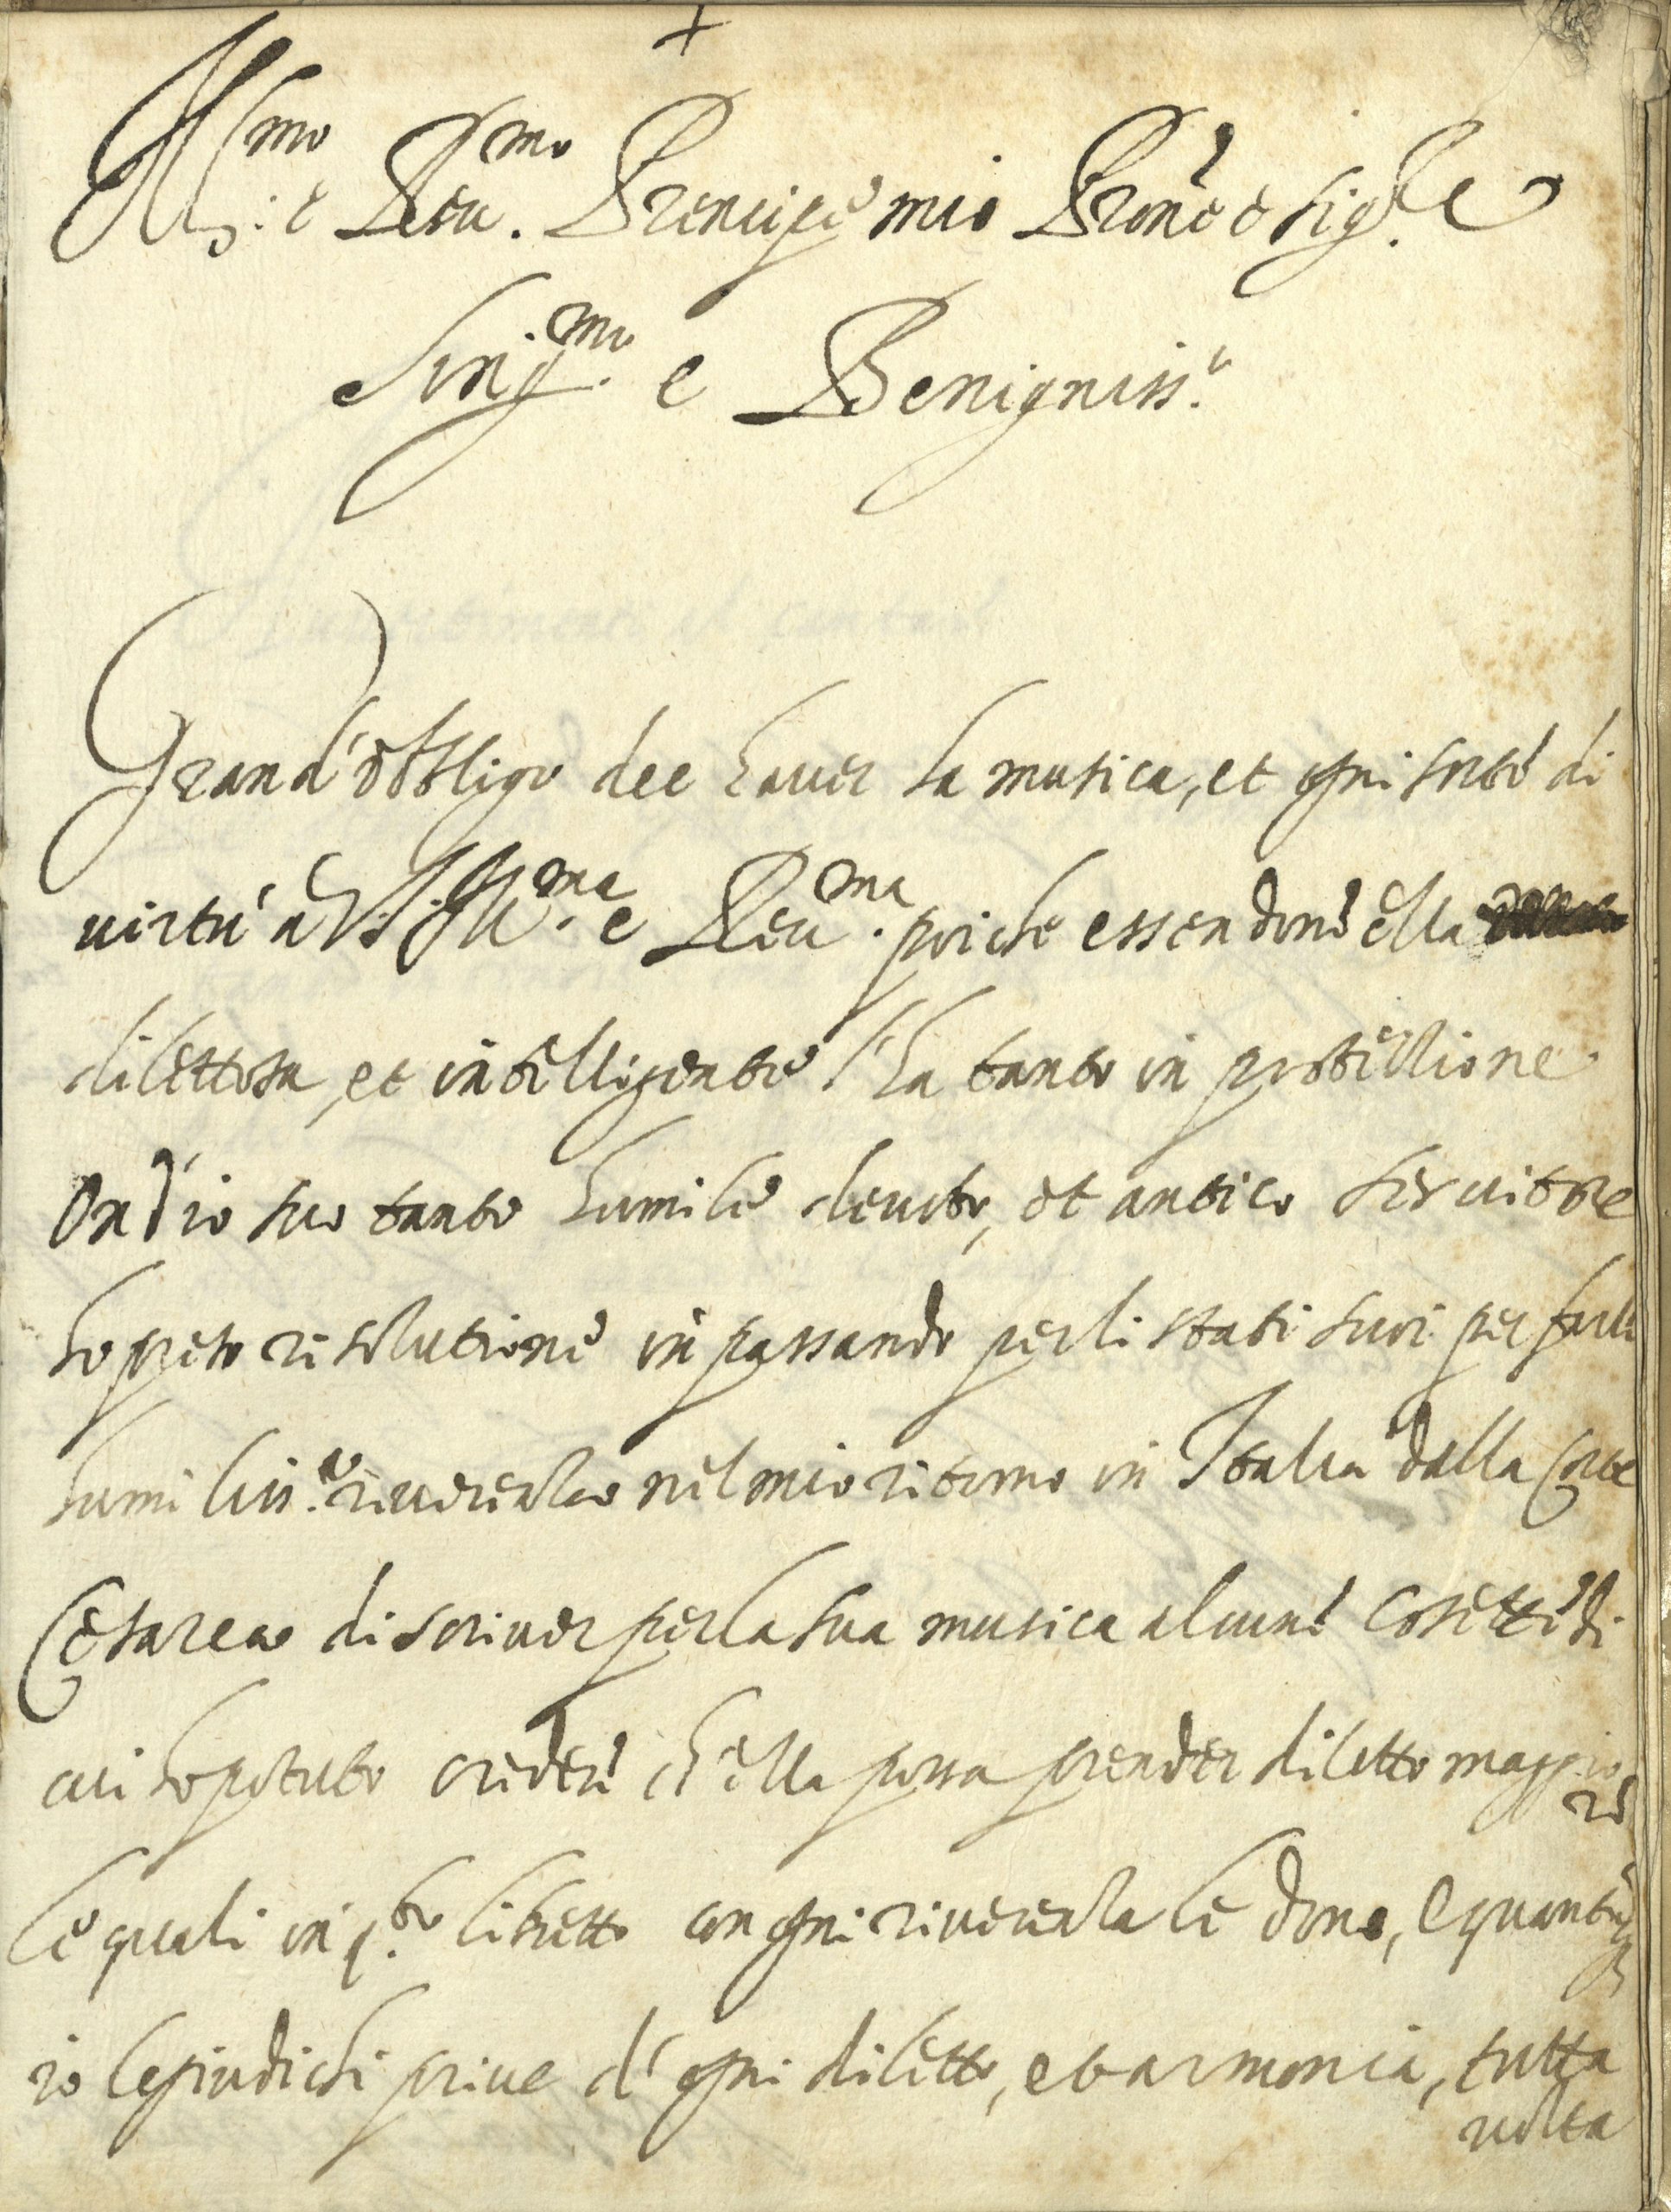 +
Ill.mo e Reu.mo Prencipe mio Prone e Sig.re
Sing.mo e Benigniss.o
Grand'obbligo dee hauer la musica, et ogni sorte di
uirtù a V.S. Ill.ma e Reu.ma poiche essendone ella
dilettosa, et intelligente l'ha tanto in protettione
Ond'io suo tanto humile deuoto, et antico seruitore
ho preso risolutione in passando per li stati suoi per farle
humiliss.a riuerenza nel mio ritorno in Italia dalla Corte
Cesarea di scriuer per la sua musica alcune cosette di
cui ho potuto credere ch'ella possa prender diletto maggio
re
le quali in q.to libretto con ogni riuerenza le dono, e quantunq
io le giudichi priue d'ogni diletto, et armonia, tutta
uolta